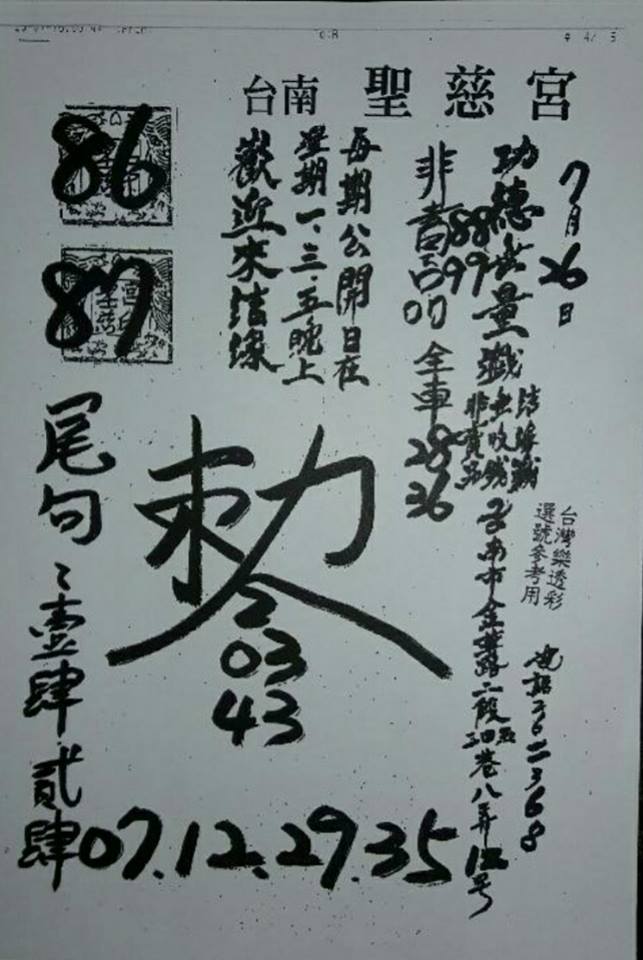 台南 聖慈宮
7月26日
功德無量 8899
結緣 無收錢
非賣品
非賣品 全車 28 36
每期公開日在
星期一.三.五晚上
歡迎來結緣
86
87
台灣樂透彩
選號參考用
台南市金華路二段
巷八弄12号
電話2622368
敕
03
43
尾句:壹肆.貳肆
07.12.29.35